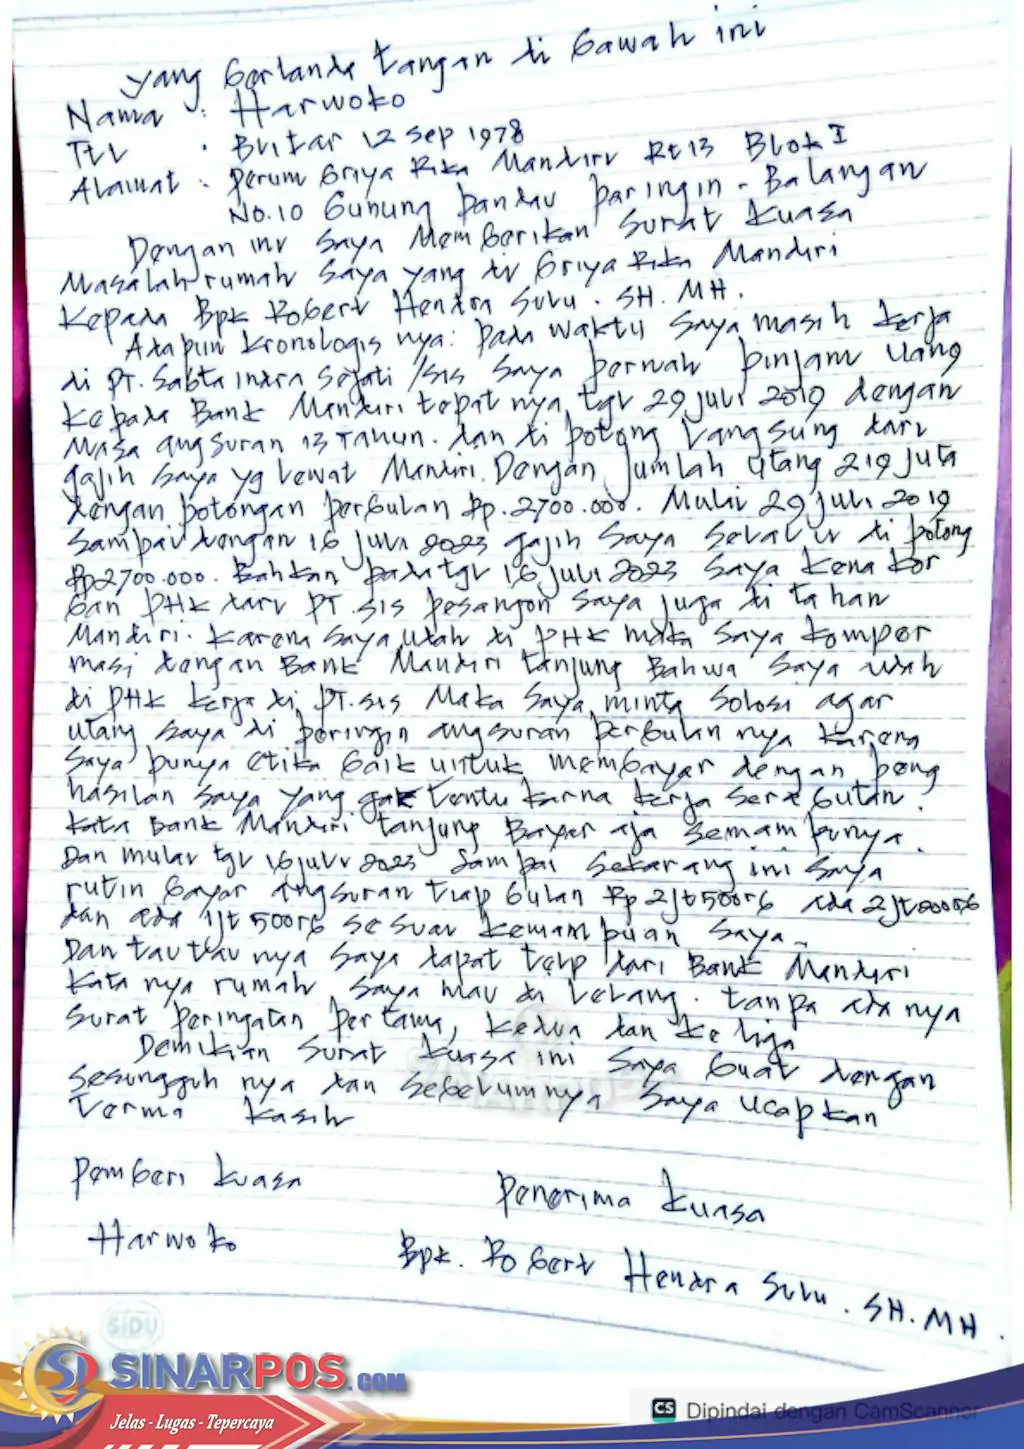 yang bertanda tangan di bawah ini
Nama : Harwoko
TTL : Blitar 12 Sep 1978
Alamat : Perum Griya Rika Mandiri Rt 13 Blok I
No.10 Gunung Pandau Paringin - Balangan
Dengan ini Saya Memberikan Surat Kuasa
Masalah rumah Saya yang di Griya Rika Mandiri
Kepada Bpk Robert Hendra Sulu. SH. MH.
Adapun Kronologis nya: Pada waktu Saya masih kerja
di PT. Sabta indra Sejati /sis Saya pernah pinjam uang
Kepada Bank Mandiri tepat nya, tgl 29 juli 2019 dengan
Masa angsuran 13 Tahun. dan di potong Langsung dari
gajih Saya yg Lewat Mandiri. Dengan jumlah utang 219 juta
dengan potongan perbulan Rp.2700.000. Mulai 29 juli 2019
Sampai dengan 16 juli 2023 gajih Saya Selalu di potong
Rp2700.000. Bahkan pada tgl 16 juli 2023 Saya kena kor
ban PHK dari PT.sis pesangon Saya juga di tahan
Mandiri. Karena Saya udah di PHK maka Saya kompor
masi dengan Bank Mandiri tanjung Bahwa Saya udah
di PHK kerja di PT.sis Maka Saya minta Solosi agar
utang Saya di peringin angsuran perbulan nya karena
Saya punya etika baik untuk membayar dengan peng
hasilan Saya yang gak tentu karna kerja serabutan.
kata Bank Mandiri tanjung Bayar aja semampunya.
Dan mulai tgl 16 juli 2023 Sampai Sekarang ini Saya
rutin bayar angsuran tiap bulan Rp 2jt500rb ada 2jt000rb
dan ada 1jt 500rb sesuai kemampuan Saya.
Dan tau tau nya Saya dapat telp dari Bank Mandiri
Kata nya rumah Saya mau di Lelang. tanpa ada nya
Surat Peringatan Pertama, kedua dan ke tiga
Demikian Surat Kuasa ini Saya buat dengan
Sesungguh nya dan Sebelumnya Saya ucapkan
Terima kasih
Pemberi kuasa
Penerima kuasa
Harwoko
Bpk. Robert Hendra Sulu. SH. MH.
SiDU
SINARPOS.COM
Jelas - Lugas - Tepercaya
CS Dipindai dengan CamScanner